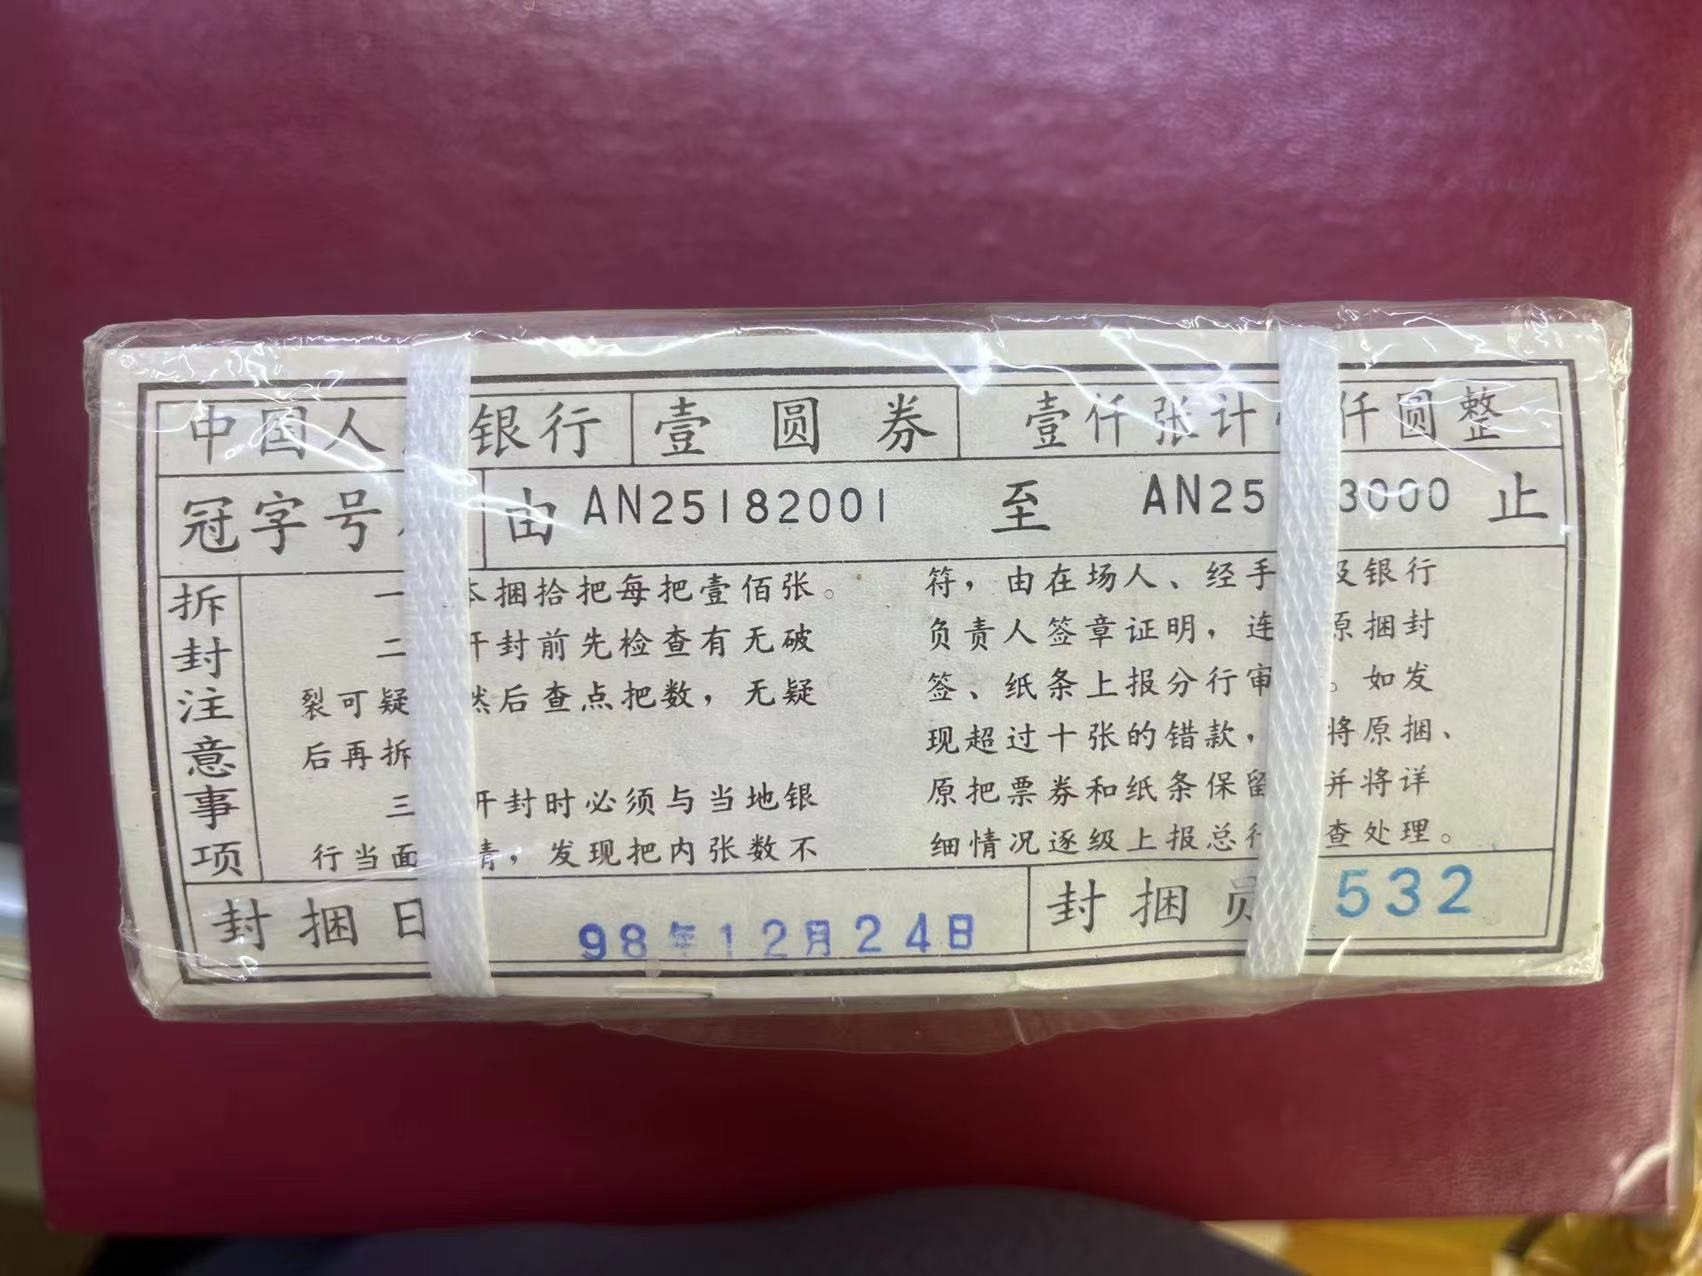 中国人 银行 壹圆券 壹仟张计 仟圆整
冠字号 由 AN25182001 至 AN25 3000 止
拆封注意事项
一 本捆拾把每把壹佰张。
二 开封前先检查有无破
裂可疑 然后查点把数，无疑
后再拆
三 开封时必须与当地银
行当面 清，发现把内张数不
符，由在场人、经手 及银行
负责人签章证明，连 原捆封
签、纸条上报分行审 。如发
现超过十张的错款， 将原捆、
原把票券和纸条保留 并将详
细情况逐级上报总行 查处理。
封捆日 98年12月24日 封捆员 532